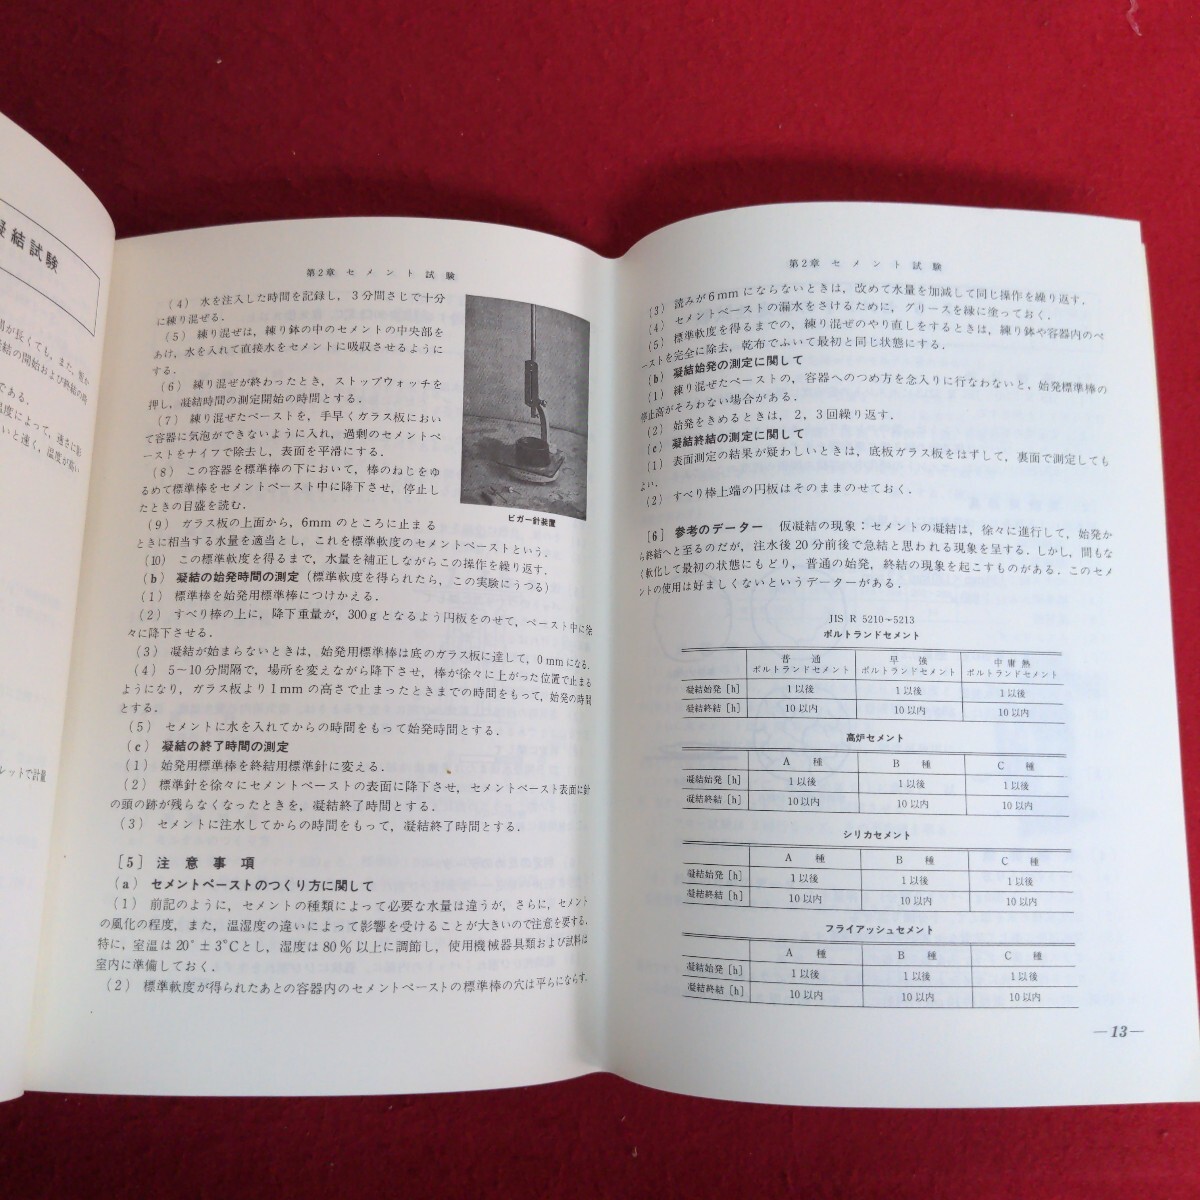 凝結試験
間が長くても，また，短か
結の開始および終結の時
である．
温度によって，遅さに影
いと速く，温度が高い
レットで計量
第2章 セメント試験
(4) 水を注入した時間を記録し，3分間さじで十分
に練り混ぜる．
(5) 練り混ぜは，練り鉢の中のセメントの中央部を
あけ，水を入れて直接水をセメントに吸収させるように
する．
(6) 練り混ぜが終わったとき，ストップウォッチを
押し，凝結時間の測定開始の時間とする．
(7) 練り混ぜたペーストを，手早くガラス板におい
て容器に気泡ができないように入れ，過剰のセメントペ
ーストをナイフで除去し，表面を平滑にする．
(8) この容器を標準棒の下において，棒のねじをゆ
るめて標準棒をセメントペースト中に降下させ，停止し
たときの目盛を読む．
ビガー針装置
(9) ガラス板の上面から，6mmのところに止まる
ときに相当する水量を適当とし，これを標準軟度のセメントペーストという．
(10) この標準軟度を得るまで，水量を補正しながらこの操作を繰り返す．
(b) 凝結の始発時間の測定（標準軟度を得られたら，この実験にうつる）
(1) 標準棒を始発用標準棒につけかえる．
(2) すべり棒の上に，降下重量が，300gとなるよう円板をのせて，ペースト中に徐
々に降下させる．
(3) 凝結が始まらないときは，始発用標準棒は底のガラス板に達して，0mmになる．
(4) 5～10分間隔で，場所を変えながら降下させ，棒が徐々に上がった位置で止まる
ようになり，ガラス板より1mmの高さで止まったときまでの時間をもって，始発の時間
とする．
(5) セメントに水を入れてからの時間をもって始発時間とする．
(c) 凝結の終了時間の測定
(1) 始発用標準棒を終結用標準針に変える．
(2) 標準針を徐々にセメントペーストの表面に降下させ，セメントペースト表面に針
の頭の跡が残らなくなったときを，凝結終了時間とする．
(3) セメントに注水してからの時間をもって，凝結終了時間とする．
[5] 注意事項
(a) セメントペーストのつくり方に関して
(1) 前記のように，セメントの種類によって必要な水量は違うが，さらに，セメント
の風化の程度，また，温湿度の違いによって影響を受けることが大きいので注意を要する．
特に，室温は20°±3°Cとし，湿度は80％以上に調節し，使用機械器具類および試料は
室内に準備しておく．
(2) 標準軟度が得られたあとの容器内のセメントペーストの標準棒の穴は平らにならす．
第2章 セメント試験
(3) 読みが6mmにならないときは，改めて水量を加減して同じ操作を繰り返す．
(4) セメントペーストの漏水をさけるために，グリースを縁に塗っておく．
(5) 標準軟度を得るまでの，練り混ぜのやり直しをするときは，練り鉢や容器内のペ
ーストを完全に除去，乾布でふいて最初と同じ状態にする．
(b) 凝結始発の測定に関して
(1) 練り混ぜたペーストの，容器へのつめ方を念入りに行なわないと，始発標準棒の
停止高がそろわない場合がある．
(2) 始発をきめるときは，2，3回繰り返す．
(c) 凝結終結の測定に関して
(1) 表面測定の結果が疑わしいときは，底板ガラス板をはずして，裏面で測定しても
よい．
(2) すべり棒上端の円板はそのままのせておく．
[6] 参考のデーター 仮凝結の現象：セメントの凝結は，徐々に進行して，始発か
ら終結へと至るのだが，注水後20分前後で急結と思われる現象を呈する．しかし，間もな
く軟化して最初の状態にもどり，普通の始発，終結の現象を起こすものがある．このセメ
ントの使用は好ましくないというデーターがある．
JIS R 5210～5213
ポルトランドセメント
普通 早強 中庸熱
ポルトランドセメント ポルトランドセメント ポルトランドセメント
凝結始発[h] 1以後 1以後 1以後
凝結終結[h] 10以内 10以内 10以内
高炉セメント
A種 B種 C種
凝結始発[h] 1以後 1以後 1以後
凝結終結[h] 10以内 10以内 10以内
シリカセメント
A種 B種 C種
凝結始発[h] 1以後 1以後 1以後
凝結終結[h] 10以内 10以内 10以内
フライアッシュセメント
A種 B種 C種
凝結始発[h] 1以後 1以後 1以後
凝結終結[h] 10以内 10以内 10以内
—13—